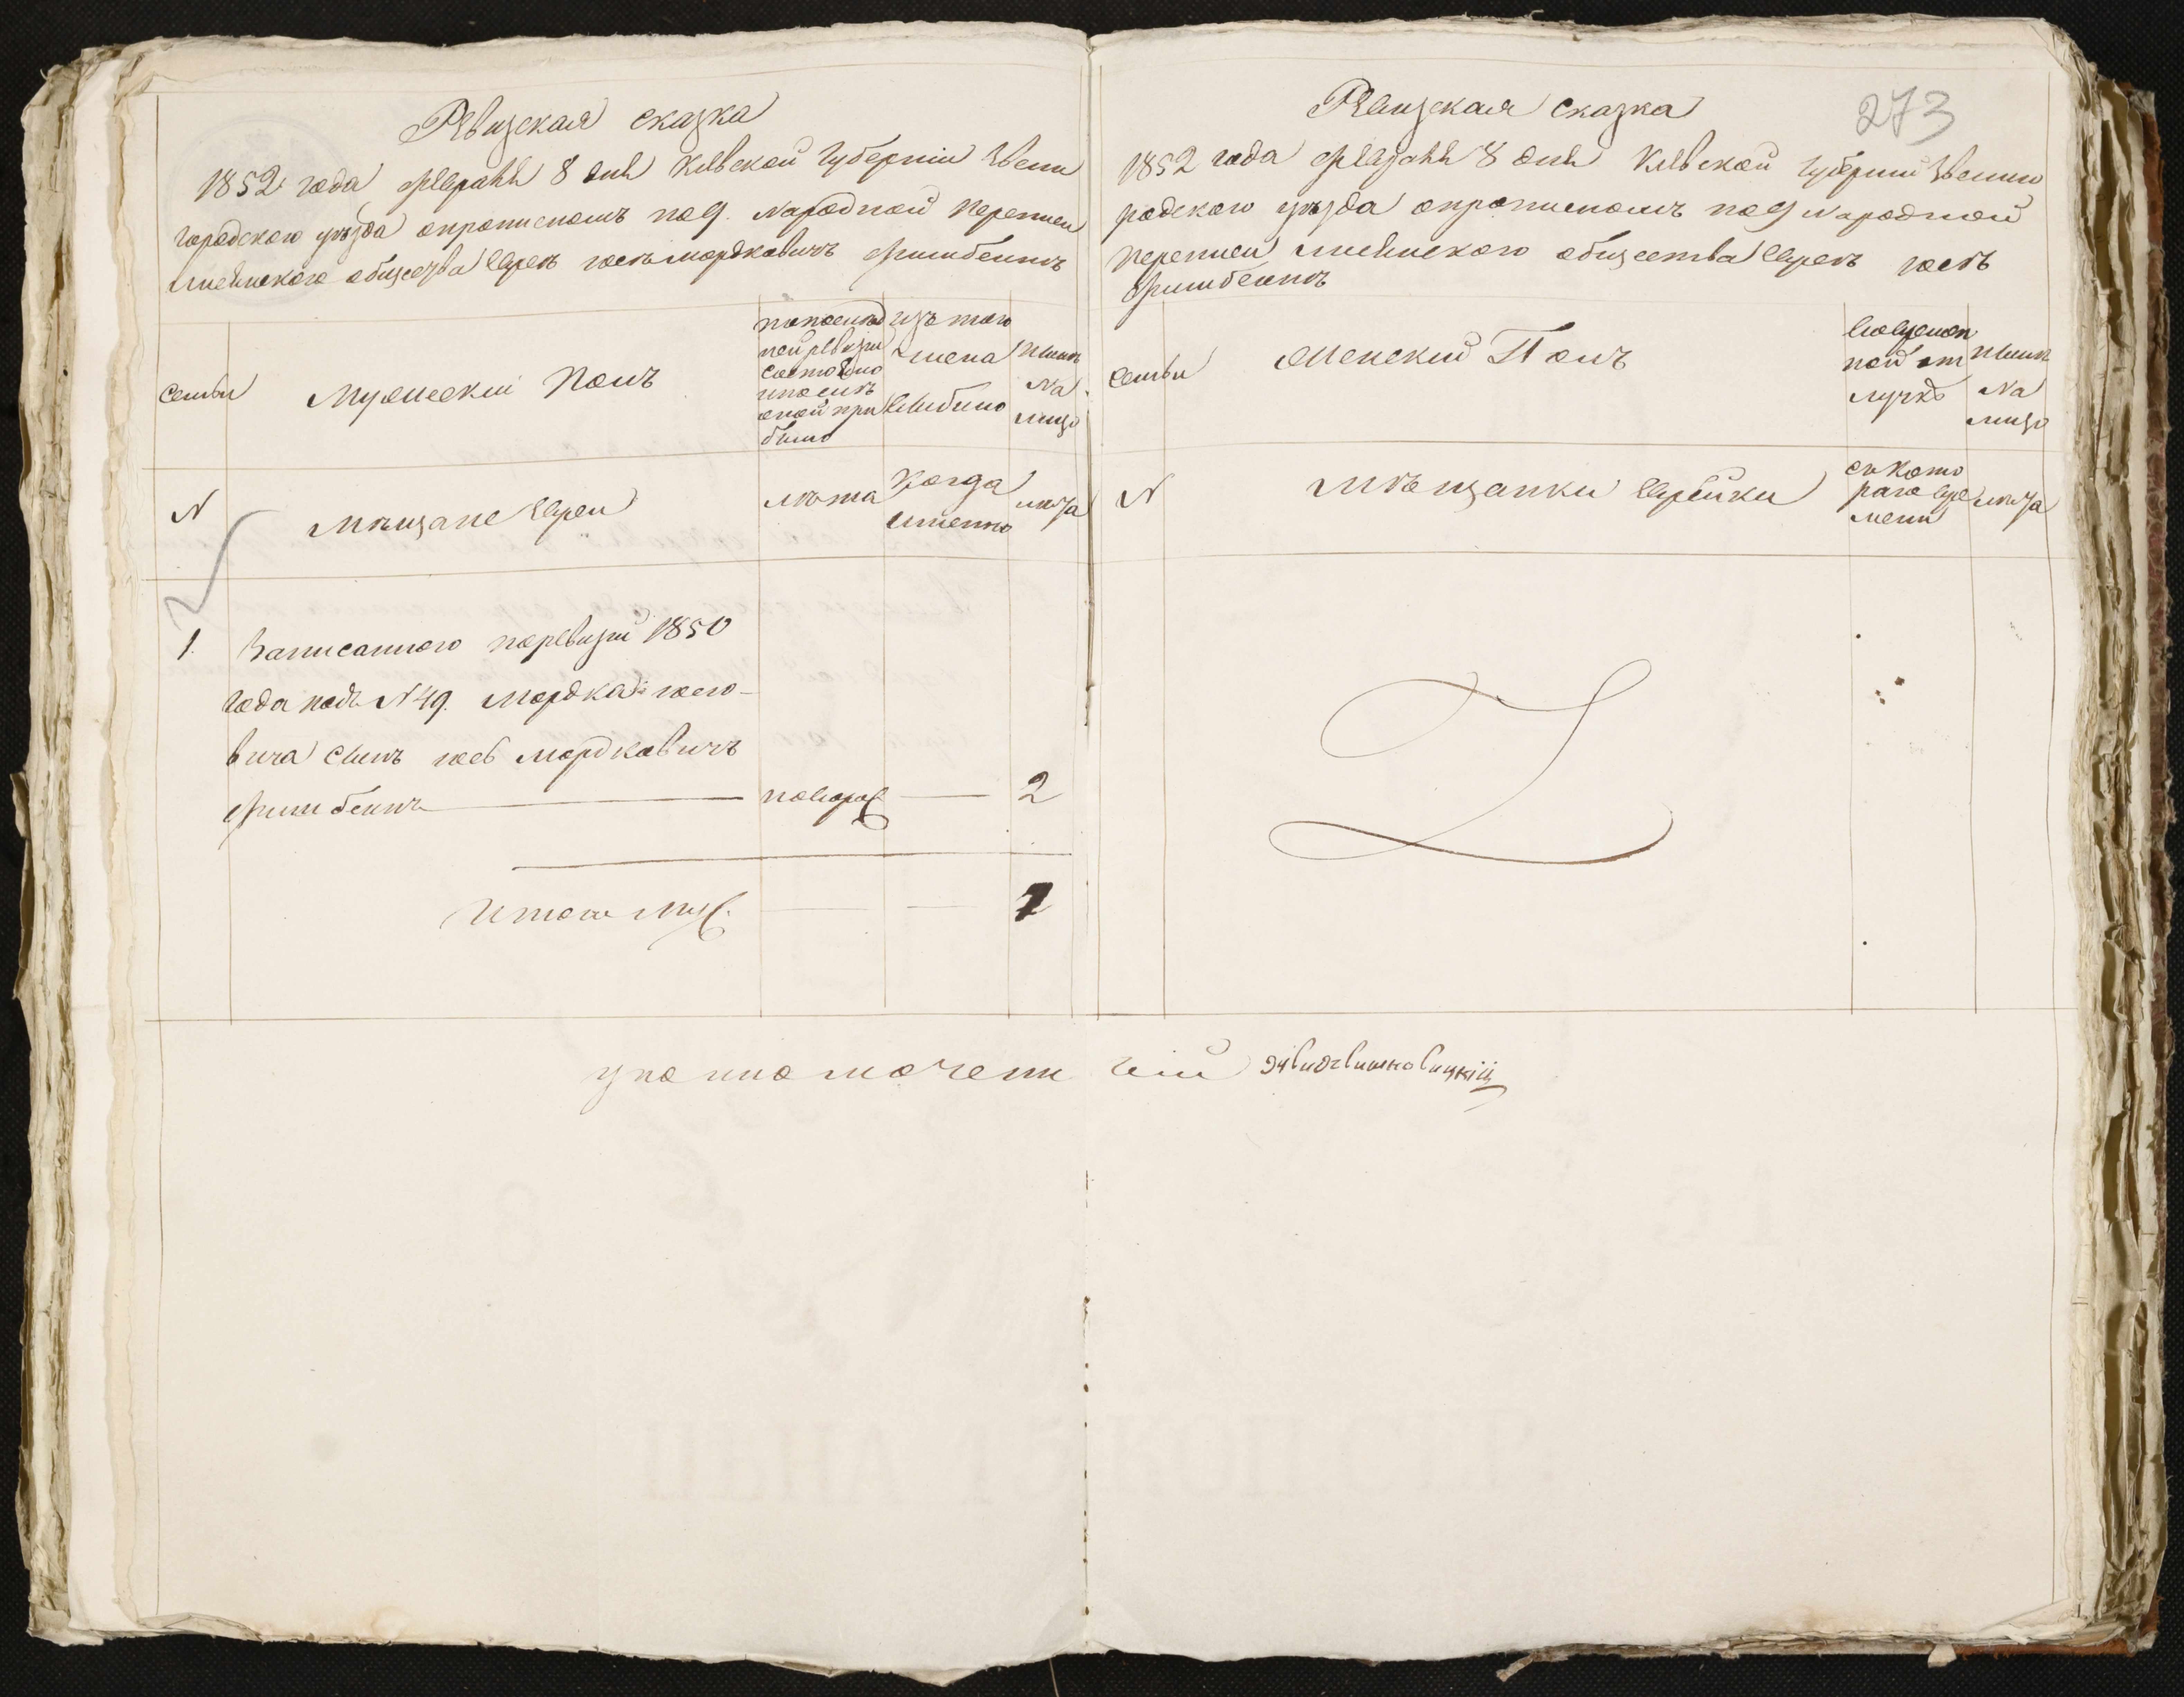 Ревизская сказка
1852 года февраля 8 дня Киевской Губернии Звени
городского уезда опрописномъ по 9. Народной переписи
Лисянского общества еврея Мордковичъ
Семьи
Мужеский Полъ
по последней
ней ревизии
состояло
и после
оной при
было
изъ того
числа
выбыло
Ныне
на
лицо
N
Мѣщане Евреи
лѣта
Когда
именно
лѣта
1.
Записанного по ревизии 1850
года подъ N 49. Мордка
вича сынъ Мордковичъ
Фишбейнъ
новорож
2
Итого муж.
1
273
Ревизская сказка
1852 года февраля 8 дня Киевской Губернии Звениго
родского уезда опрописномъ по 9 Народной
переписи Лисянского общества еврея
Фишбейнъ
Семьи
Женский Полъ
Во времен
ной от
лучке
Ныне
на
лицо
N
Мѣщанки Еврейки
съ кото
раго вре
мени
лѣта
уполномоченный